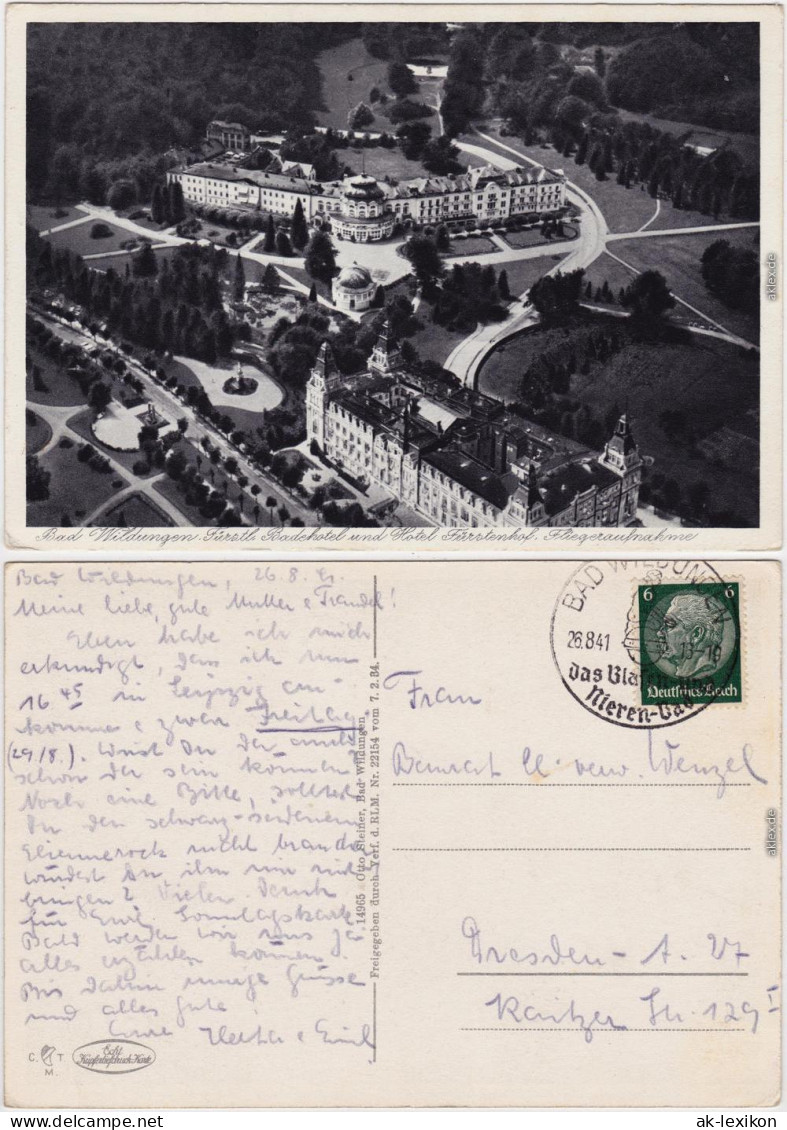 Bad Wildungen. Fürstl. Badehotel und Hotel Fürstenhof. Fliegeraufnahme
aklex.de
Bad Wildungen, 26.8.41.
Meine liebe, gute Mutter & Traudel!
Eben habe ich mich
erkundigt, dass ich nun
16 45 in Leipzig an-
komme & zwar Freitag
(29/8.). Wirst Du da
schon da sein können?
Noch eine Bitte, solltest
Du den schwarz-seidenen
nicht brauchen
würdest Du ihn mir mit
bringen? Vielen Dank
für Eure Sonntagskarte
Bald werden wir uns ja
alles erzählen können.
Bis dahin innige Grüsse
und alles Gute
Eure Herta & Emil
C. T
M.
Echt
Kupfertiefdruck-Karte
14965 Otto Steiner, Bad Wildungen
Freigegeben durch Verf. d. RLM. Nr. 22154 vom 7. 2. 34.
BAD WILDUNGEN
26.8.41
das Blasen- und
Nieren-Bad
6 6
Deutsches Reich
Frau
verw. Wenzel
Dresden-A. 27
Kaitzer Str. 129 I
aklex.de
ak-lexikon
ak-lexikon.com